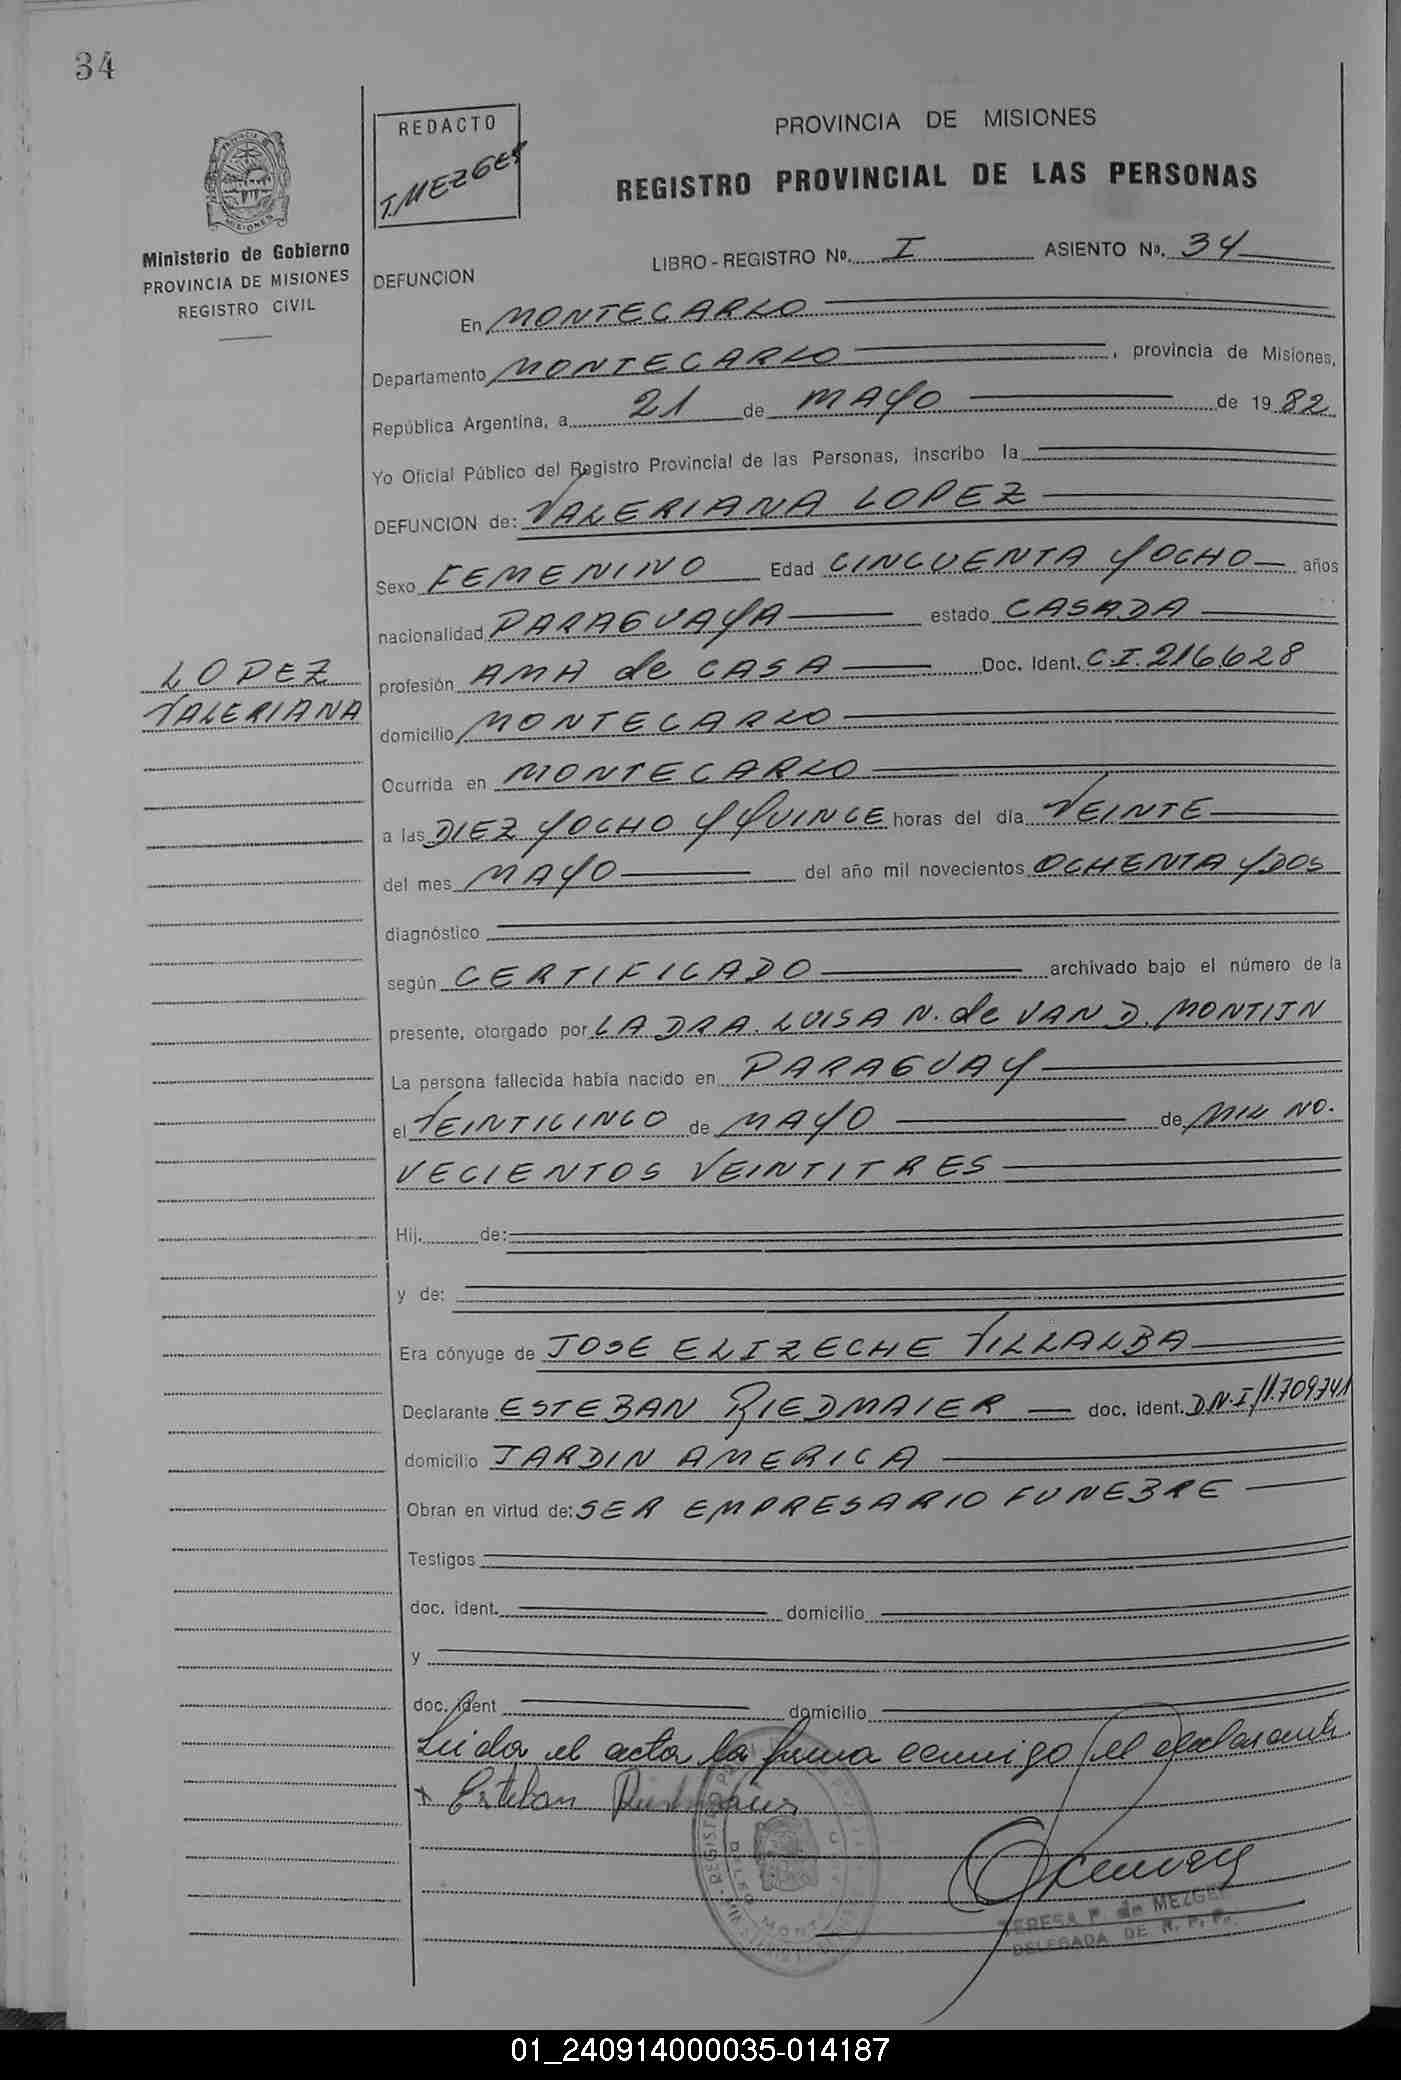 34
REDACTO
T. MEZGER
PROVINCIA DE MISIONES
REGISTRO PROVINCIAL DE LAS PERSONAS
PROVINCIA
MISIONES
Ministerio de Gobierno
PROVINCIA DE MISIONES
REGISTRO CIVIL
LIBRO - REGISTRO Nº. I ASIENTO Nº. 34
DEFUNCION
En MONTECARLO
Departamento MONTECARLO, provincia de Misiones,
República Argentina, a 21 de MAYO de 1982
Yo Oficial Público del Registro Provincial de las Personas, inscribo la
DEFUNCION de: VALERIANA LOPEZ
Sexo FEMENINO Edad CINCUENTA Y OCHO años
nacionalidad PARAGUAYA estado CASADA
LOPEZ
VALERIANA
profesión AMA de CASA Doc. Ident. C.I. 216.628
domicilio MONTECARLO
Ocurrida en MONTECARLO
a las DIEZ Y OCHO Y QUINCE horas del día VEINTE
del mes MAYO del año mil novecientos OCHENTA Y DOS
diagnóstico
según CERTIFICADO archivado bajo el número de la
presente, otorgado por LA DRA. LUISA N. de VAN D. MONTIJN
La persona fallecida había nacido en PARAGUAY
el VEINTICINCO de MAYO de MIL NO.
VECIENTOS VEINTITRES
Hij. de:
y de:
Era cónyuge de JOSE ELIZECHE VILLALBA
Declarante ESTEBAN RIEDMAIER doc. ident. D.N.I 11.709.741
domicilio JARDIN AMERICA
Obran en virtud de: SER EMPRESARIO FUNEBRE
Testigos
doc. ident. domicilio
y
doc. ident domicilio
Leida el acta la firma conmigo el declarante
x Esteban Riedmaier
TERESA P. de MEZGER
DELEGADA DE R. P. P.
01_240914000035-014187